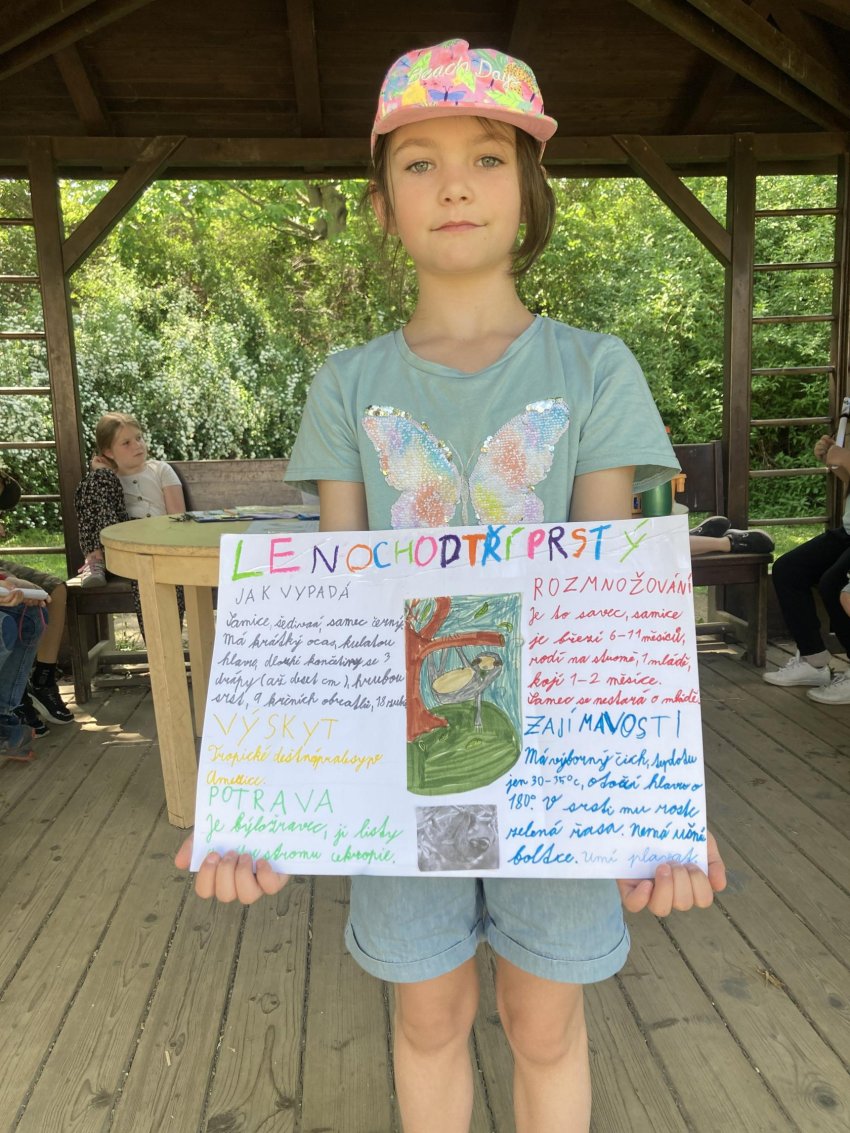 Beach Days
LENOCHOD TŘÍPRSTÝ
JAK VYPADÁ
Samice, šedivá, samec černý.
Má krátký ocas, kulatou
hlavu, dlouhé končetiny se 3
drápy (až deset cm), hrubou
srst, 9 krčních obratlů, 18 zubů
VÝSKYT
Tropické deštné pralesy v
Americe.
POTRAVA
Je býložravec, jí listy
stromu cekropie.
ROZMNOŽOVÁNÍ
Je to savec, samice
je březí 6-11 měsíců,
rodí na stromě, 1 mládě,
kojí 1-2 měsíce.
Samec se nestará o mládě.
ZAJÍMAVOSTI
Má výborný čich, teplotu
jen 30-35°C, otočí hlavu o
180°. V srsti mu roste
zelená řasa. Nemá ušní
boltce. Umí plavat.